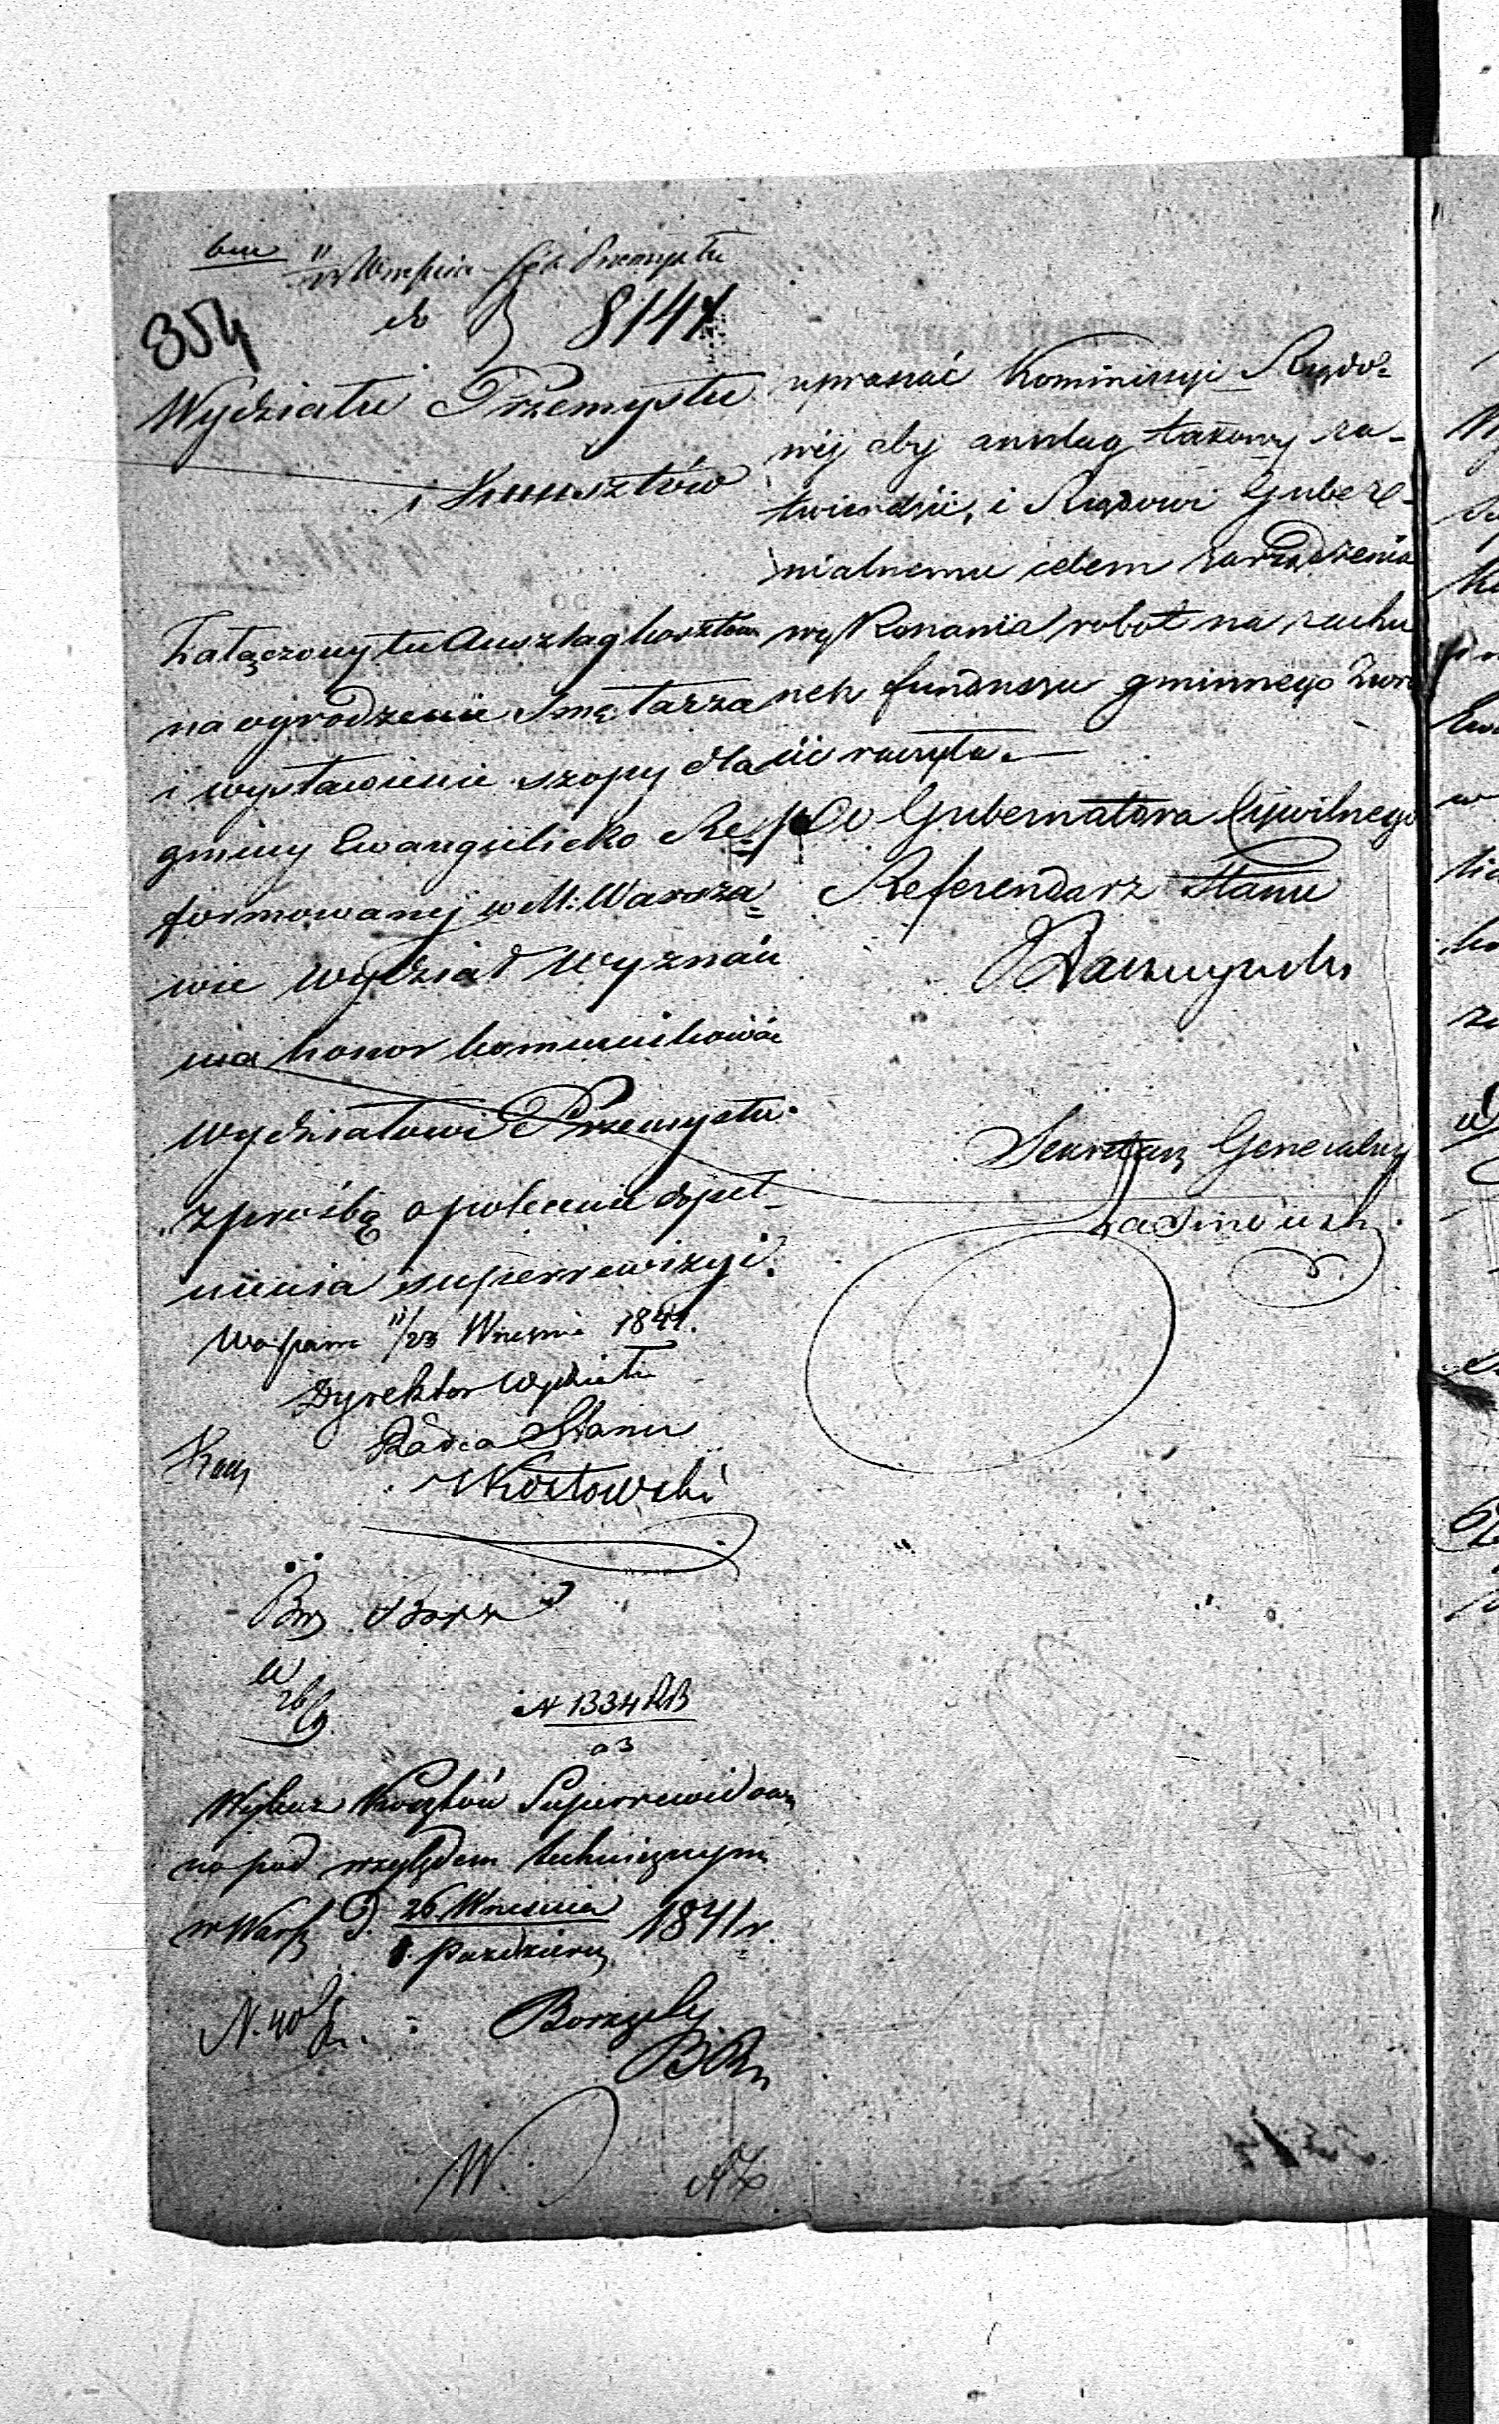 354
8141
Wydziału Przemysłu
i Kunsztów
Załączony tu Auszlag kosztów
na ogrodzenie Smętarza
i wystawienie szopy dla
gminy Ewangelicko Re-
formowanej w M: Warsza-
wie Wydział Wyznań
ma honor komunikować
Wydziałowi Przemysłu
z prośbą o polecenie dopeł-
nienia superrewizyi.
11/23 Wrześnie 1841.
Dyrektor Wydziału
Radca Stanu
Kozłowski
N 1334 RB
Wykaz Kosztów Superrewidowa
no pod względem technicznym
w Warsz d. 26 Września 1841 r.
8. Paździer
upraszać Kommissyi Rządo-
wéj aby anszlag takowy za-
twierdzić, i Rządowi Guber-
nialnemu celem zarządzenia
wykonania robot na rachu
nek funduszu gminnego zwró
cić raczyła.
Gubernatora Cywilnego
Referendarz Stanu
Sekretarz Generalny